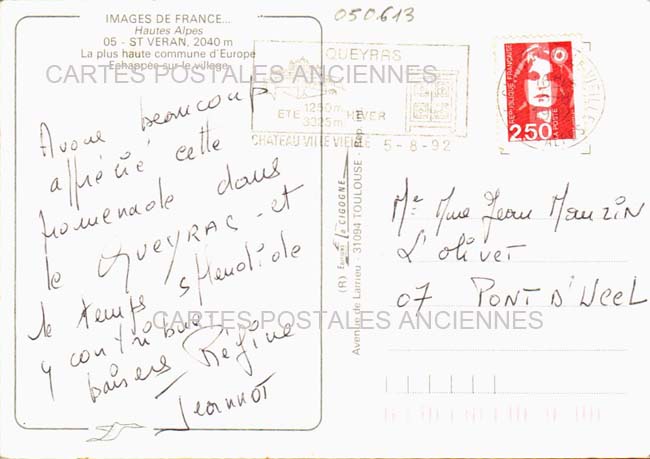 050613
IMAGES DE FRANCE...
Hautes Alpes
05 - ST VERAN, 2040 m
La plus haute commune d'Europe
Echappée sur le village
CARTES POSTALES ANCIENNES
Avons beaucoup
apprécié cette
promenade dans
le QUEYRAS et
le temps splendide
y contribue
baisers Régine
Jeannot
QUEYRAS
1250 m
ETE HIVER
3325 m
CHATEAU VILLE VIEILLE
5-8-92
REPUBLIQUE FRANÇAISE
2,50
LA POSTE
(R) Editions La CIGOGNE
Avenue de Larrieu - 31094 TOULOUSE
Mr Mme Jean Manzin
L'olivet
07 PONT D'UCEL
CARTES POSTALES ANCIENNES